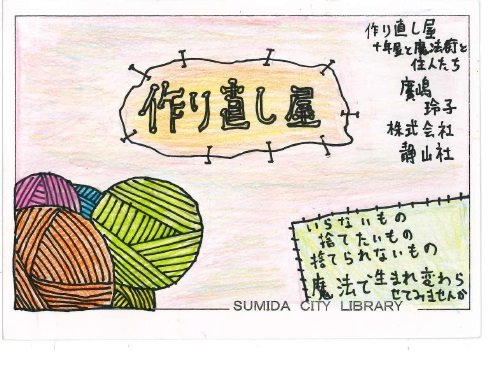 作り直し屋
作り直し屋
十年屋と魔法街と
住人たち
廣嶋
玲子
株式会社
静山社
いらないもの
捨てたいもの
捨てられないもの
魔法で生まれ変わら
せてみませんか
SUMIDA CITY LIBRARY